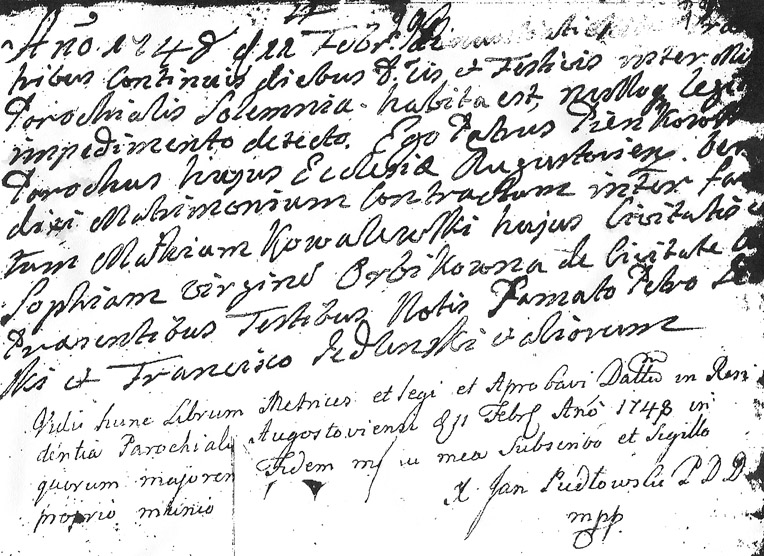 Año 1748 d 11 Febr.
tribus continuis diebus D.cis et Festivis inter Mi
Parochialis Solemnia habita est, nulloq legi
impedimento detecto. Ego Petrus Pienkows
Parochus hujus Ecclesiæ Augustovien. Ben
dixi Matrimonium Contractum inter fa
tum Mathiam Kowalewski hujus Civitatis
Sophiam Virginē Orbikowna de Civitate
Præsentibus Testibus Notis Famato Petro
ski et Francisco Jedlinski et aliorum
Vidi hunc Librum Metrices et legi et Aprobavi Dattū in Resi
dentia Parochiali Augostoviensi d 11 Febr Anō 1748 in
quorum majorem Fidem me mea Subscribo et Sigillo
proprio munio X Jan Rudtowski P D D
mpp.